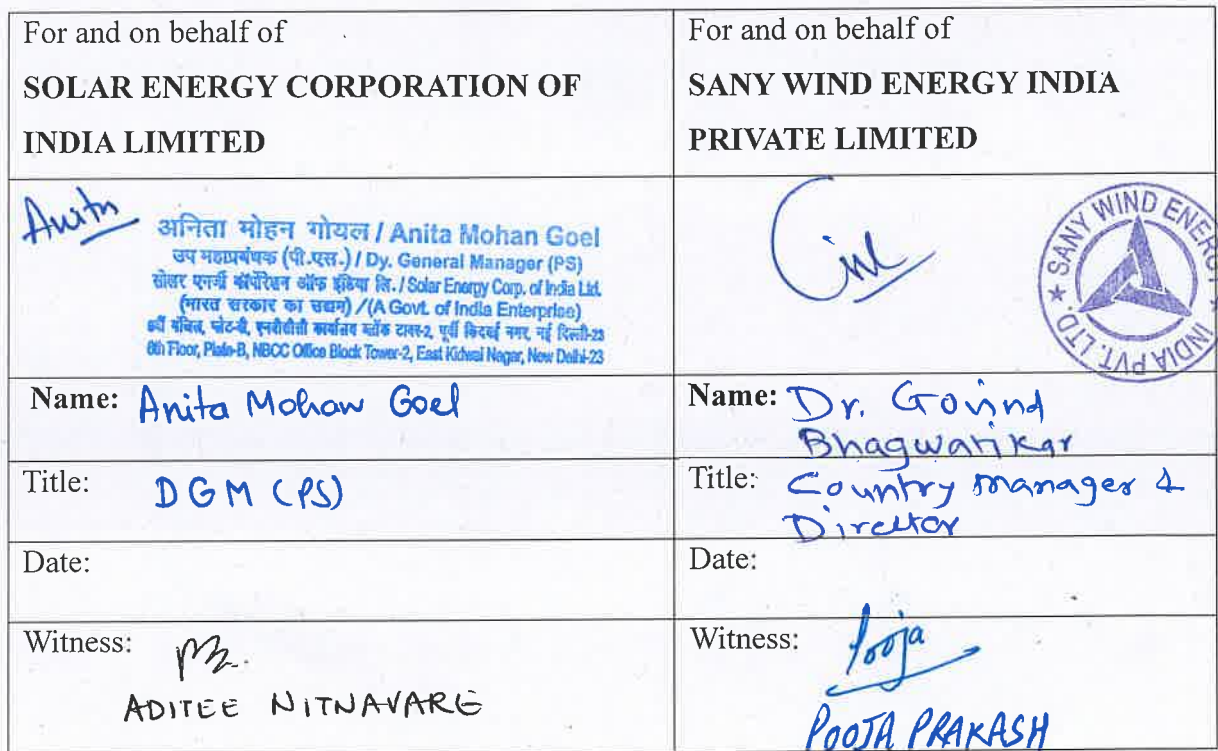 For and on behalf of
SOLAR ENERGY CORPORATION OF
INDIA LIMITED
For and on behalf of
SANY WIND ENERGY INDIA
PRIVATE LIMITED
Anita
अनिता मोहन गोयल / Anita Mohan Goel
उप महाप्रबंधक (पी.एस.) / Dy. General Manager (PS)
सोलर एनर्जी कॉर्पोरेशन ऑफ इंडिया लि. / Solar Energy Corp. of India Ltd.
(भारत सरकार का उद्यम) / (A Govt. of India Enterprise)
6वीं मंजिल, प्लेट-बी, एनबीसीसी कार्यालय ब्लॉक टावर-2, पूर्वी किदवई नगर, नई दिल्ली-23
6th Floor, Plate-B, NBCC Office Block Tower-2, East Kidwai Nagar, New Delhi-23
SANY WIND ENERGY
INDIA PVT. LTD.
Name: Anita Mohan Goel
Name: Dr. Govind
Bhagwatikar
Title: DGM (PS)
Title: Country Manager &
Director
Date:
Date:
Witness:
ADITEE NITNAVARE
Witness: Pooja
POOJA PRAKASH